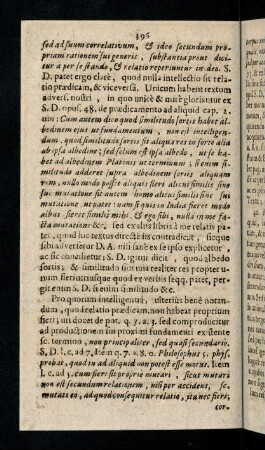 396
sed ad suum correlativum, & ideo secundum pro-
priam rationem sui generis, substantia prout dici-
tur a per se stando, & relatio reperiuntur in deo. S.
D. patet ergo clarè, quod nulla intellectio sit rela-
tio prædicam, & viceversâ. Unicum habent textum
adversi. nostri, in quo unicè & mirè gloriantur ex
S. D. opus. 48. de prædicamento ad aliquid cap. 2.
Cum autem dico quod similitudo sortis habet al-
bedinem ejus ut fundamentum, non est intelligen-
dum, quod similitudo sortis sit aliqua res in sorte alia
ab ipsa albedine; sed solum est ipsa albedo, ut se ha-
bet ad albedinem Platonis ut terminum; si enim si-
militudo adderet supra albedinem sortis aliquam
rem, nullo modo posset aliquis fieri alicui similis sine
sui mutatione sit autem homo alicui similis sine
sui mutatione, ut patet: nam si quis in India fieret modo
albus fieret similis mihi, & ego sibi, nulla in me fa-
cta mutatione &c. sed exultet libris à me relatis pa-
tet, quod hic textus directè iis contradicit, sicque
sibi adversetur D. A. nisi sanè ex se ipso explicetur,
ac sic concilietur; S. D. igitur dicit, quod albedo
fortis, & similitudo non sint realiter res propter u-
num fieri actusque quod ex verbis seqq. patet, per-
git enim S. D. si enim similitudo &c.
Pro quorum intelligentia, ulterius benè notan-
dum, quòd relatio prædicam. non habeat proprium
fieri; ut docet de pot. q. 3. a. 3. sed comproducitur
ad productionem sui proximi fundamenti existente
sc. termino, non principaliter, sed quasi secundario.
S. D. l. c. ad 7. Item q. 7. a. 8. o. Philosophus 5. phys.
probat, quod in ad aliquid non potest esse motus. Item
l. c. ad 3. cum fieri sit propriè mutari, sicut mutari
non est secundum relationem, nisi per accidens, sc.
mutato eo, ad quod consequitur relatio, ita nec fieri,
cor-